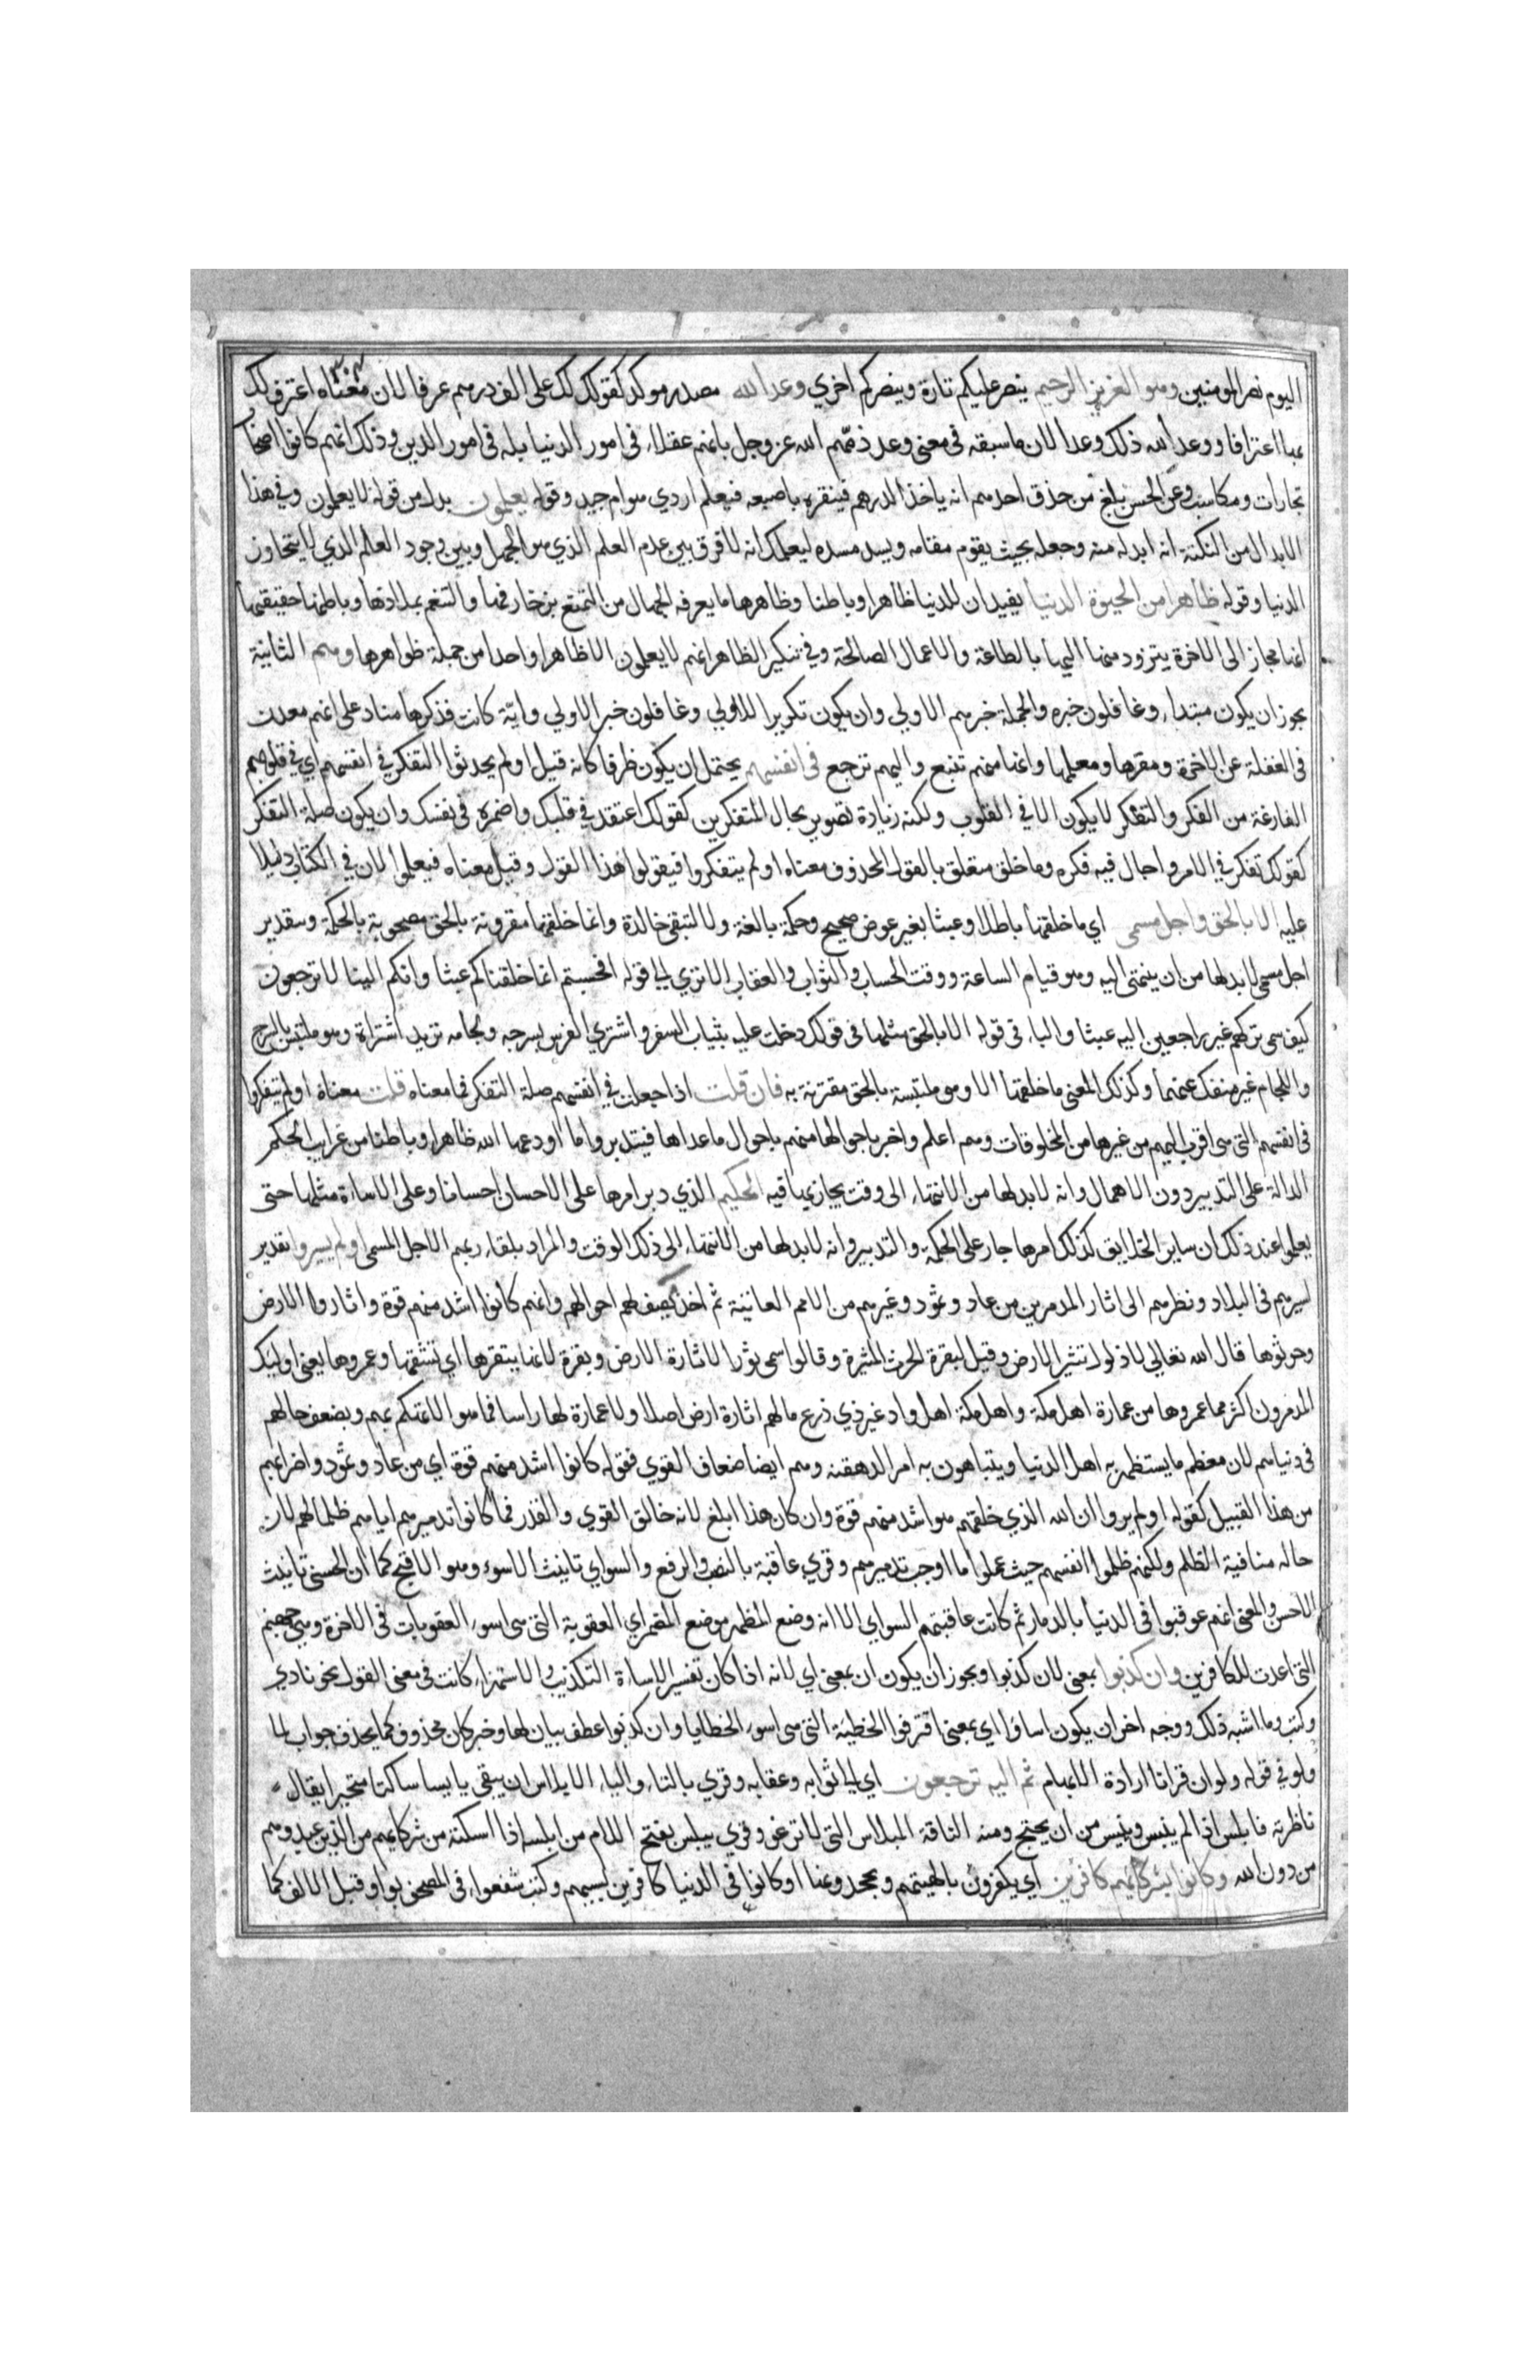 اليوم نصر المومنين وهو العزيز الرحيم ينصر عليكم تارة وينصركم اخري وعد الله مصدر موكد كقولك لك على الف درهم عرفا لان معناه اعترف لك
بها اعترافا ووعد الله ذلك وعدا لان ما سبقه فى معنى وعد ذمهم الله عز وجل بانهم عقلاء فى امور الدنيا بله فى امور الدين وذلك انهم كانوا اصحاب
تجارات ومكاسب وعن الحسن بلغ من حذق احدهم انه ياخذ الدرهم فينقره باصبعه فيعلم اردي هو ام جيد وقوله يعلمون بدل من قوله لا يعلمون وفى هذا
الابدال من النكتة انه ابدله منه وجعله بحيث يقوم مقامه ويسد مسده ليعلمك انه لا فرق بين عدم العلم الذي هو الجهل وبين وجود العلم الذي لا يتجاوز
الدنيا وقوله ظاهرا من الحيوة الدنيا يفيد ان للدنيا ظاهرا وباطنا وظاهرها ما يعرفه الجهال من التمتع بزخارفها والتنعم بملاذها وباطنها وحقيقتها
انها مجاز الى الاخرة يتزود منها اليها بالطاعة والاعمال الصالحة وفى تنكير الظاهر انهم لا يعلمون الا ظاهرا واحدا من جملة ظواهرها وهم الثانية
يجوز ان يكون مبتداء وغافلون خبره والجملة خبر هم الاولي وان يكون تكريرا للاولي وغافلون خبر الاولي واية كانت فذكرها مناد على انهم معدن
فى الغفلة عن الاخرة ومقرها ومعلمها وانها منهم تنبع واليهم ترجع فى انفسهم يحتمل ان يكون ظرفا كانه قيل اولم يحدثوا التفكر فى انفسهم اي فى قلوبهم
الفارغة من الفكر والتفكر لا يكون الا في القلوب ولكنه زيادة تصوير بحال المتفكرين كقولك اعتقد في قلبك واضمره فى نفسك وان يكون صلة التفكر
كقولك تفكر فى الامر واجال فيه فكره وما خلق متعلق بالقول المحذوف معناه اولم يتفكروا فيقولوا هذا القول وقيل معناه فيعلموا لان في الكتاب دليلا
عليه الا بالحق واجل مسمى اي ما خلقها باطلا وعبثا بغير عوض صحيح وحكمة بالغة ولا لتبقى خالدة وانما خلقها مقرونة بالحق مصحوبة بالحكمة وبتقدير
اجل مسمى لا بد لها من ان ينتهى اليه وهو قيام الساعة ووقت الحساب والثواب والعقاب الا تري الى قوله افحسبتم انما خلقناكم عبثا وانكم الينا لا ترجعون
كيف سمى تركهم غير راجعين اليه عبثا والباء فى قوله الا بالحق مثلها فى قولك دخلت عليه بثياب السفر واشتري الفرس بسرجه ولجامه تريد اشتراه وهو ملتبس بالسرج
واللجام غير منفك عنهما وكذلك المعنى ما خلقها الا وهى ملتبسة بالحق مقترنة به فان قلت اذا جعلت في انفسهم صلة التفكر فما معناه قلت معناه اولم يتفكروا
فى انفسهم التى هى اقرب اليهم من غيرها من المخلوقات وهم اعلم واخبر باحوالها منهم باحوال ما عداها فيتدبروا ما اودعها الله ظاهرا وباطنا من غرايب الحكم
الدالة على التدبير دون الاهمال وانه لا بد لها من الانتهاء الى وقت يجازيها فيه الحكيم الذي دبر امرها على الاحسان احسانا وعلى الاساة مثلها حتى
يعلموا عند ذلك ان ساير الخلايق كذلك امرها جار على الحكمة والتدبير وانه لا بد لها من الانتهاء الى ذلك الوقت والمراد بلقاء ربهم الاجل المسمى اولم يسيروا تقدير
لسيرهم فى البلاد ونظرهم الى اثار المدمرين من عاد وثمود وغيرهم من الامم العاتية ثم اخذ يصف لهم احوالهم وانهم كانوا اشد منهم قوة واثاروا الارض
وحرثوها قال الله تعالي لا ذلول تثير الارض وقيل لبقرة الحرث المثيرة وقالوا سمى ثورا لاثارة الارض وبقرة لانها يبقرها اي تشقها وعمروها يعنى اوليك
المدمرون اكثر مما عمروها من عمارة اهل مكة واهل مكة اهل واد غير ذي زرع ما لهم اثارة ارض اصلا ولا عمارة لها راسا فما هو الا تهكم بهم وبضعف حالهم
فى دنياهم لان معظم ما يستظهر به اهل الدنيا ويتباهون به امر الدهقنة وهم ايضا ضعاف القوي فقوله كانوا اشد منهم قوة اي من عاد وثمود واضرابهم
من هذا القبيل كقوله اولم يروا ان الله الذي خلقهم هو اشد منهم قوة وان كان هذا ابلغ لانه خالق القوي والقدر فما كانوا تدميرهم اياهم ظلما لهم لان
حاله منافية الظلم ولكنهم ظلموا انفسهم حيث عملوا ما اوجب تدميرهم وقري عاقبة بالنصب والرفع والسواي تانيث الاسوء وهو الاقبح كما ان الحسنى تانيث
الاحسن والمعنى انهم عوقبوا فى الدنيا بالدمار ثم كانت عاقبتهم السواي الا انه وضع المظهر موضع المضمر اي العقوبة التى هى اسوء العقوبات فى الاخرة وهى جهنم
التى اعدت للكافرين وان كذبوا بمعنى لان كذبوا ويجوز ان يكون ان بمعنى اي لانه اذا كان تفسير الاساة التكذيب والاستهزاء كانت فى معنى القول نحو نادي
وكتب وما اشبه ذلك ووجه اخر ان يكون اساؤا اي بمعنى اقترفوا الخطيئة التى هى اسوء الخطايا وان كذبوا عطف بيان لها وخبر كان محذوف كما يحذف جواب لما
ولو في قوله ولو ان قرانا ارادة الابهام ثم اليه ترجعون اي الى ثوابه وعقابه وقري بالتاء والياء الابلاس ان يبقى يايسا ساكتا متحيرا يقال
ناظرته فابلس اذا لم ينبس ويئس من ان يحتج ومنه الناقة المبلاس التى لا ترغو وقري يبلس بفتح اللام من ابلسه اذا اسكته من شركايهم من الذين عبدوهم
من دون الله وكانوا بشركايهم كافرين اي يكفرون بالهيتهم وبجحدونها او كانوا فى الدنيا كافرين بسببهم وكتب شفعواء فى المصحف بواو قبل الالف كما